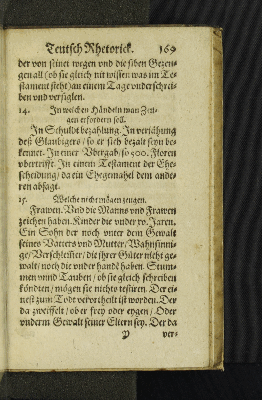 Teutsch Rhetorick. 169
der von seinet wegen vnd die siben Gezeu-
gen all (ob sie gleich nit wissen was im Te-
stament steht) an einem Tage vnderschrei-
ben vnd versiglen.
14. In welchen Händeln man Zeu-
gen erfordern soll.
In Schuldt bezahlung. In verjähung
deß Glaubigers / so er sich bezalt seyn be-
kennet. In einer Vbergab / so 500. Floren
vbertrifft. In einem Testament der Ehe-
scheidung / da ein Ehegemahel dem ande-
ren absagt.
15. Welche nicht mögen zeugen.
Frawen. Vnd die Manns vnd Frawen
zeichen haben. Kinder die vnder xv. Jaren.
Ein Sohn der noch vnter dem Gewalt
seines Vatters vnd Mutter / Wahnsinni-
ge / Verschleiffer / die jhrer Güter nicht ge-
walt / noch die vnder handẽ haben. Stum-
men vnnd Tauben / ob sie gleich schreiben
köndten / mögen sie nichts testiren. Der ei-
nest zum Todt verortheilt ist worden. Der
da zweiffelt / ob er frey oder eygen / Oder
vnderm Gewalt seiner Eltern sey. Der da
P ver-